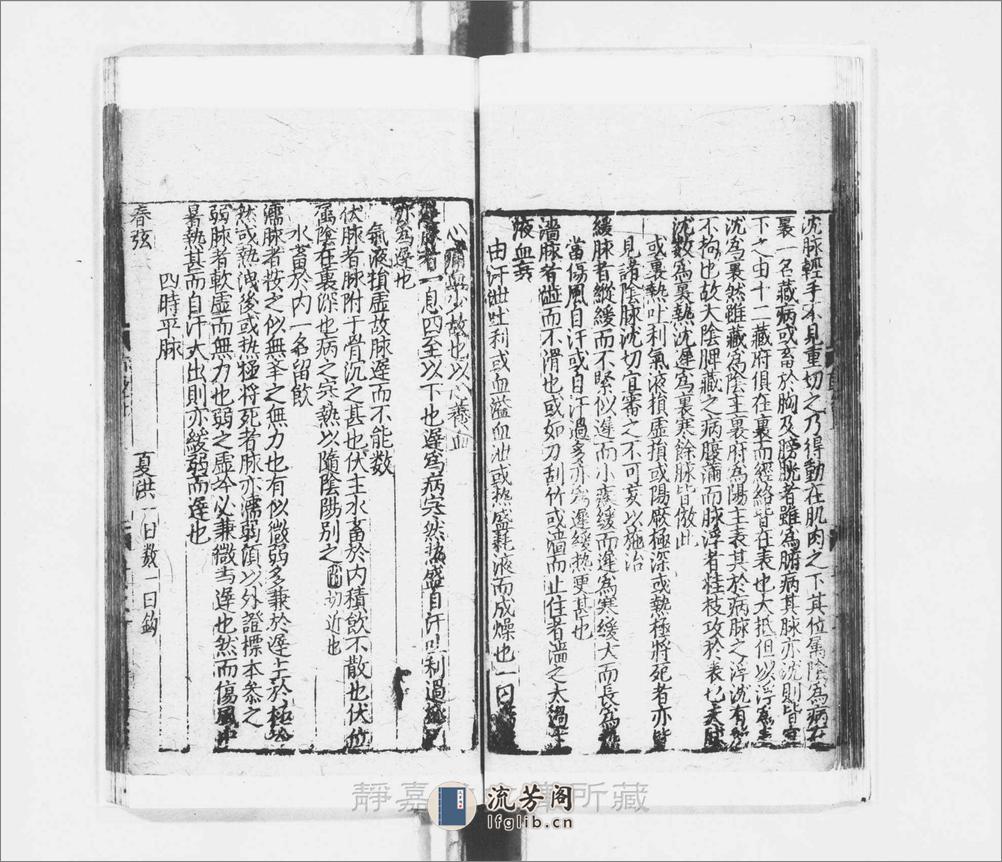 沉脉輕手不見重切之乃得動在肌肉之下其位屬陰為病在
裏一名藏病或畜於胸及膀胱者雖為腑病其脉亦沉則皆
下之由十二藏府俱在裏而經絡皆在表也大抵但以浮為表
沉為裏然雖藏為陰主裏府為陽主表其於病脉之浮沉有
不拘也故大陰脾藏之病腹滿而脉浮者桂枝攻於表也
沉數為裏熱沉遲為裏寒餘脉皆倣此
或裏熱吐利氣液損虛損或陽厥極深或熱極將死者亦皆
見諸陰脉沉切宜審之不可妄以施治
緩脉者縱緩而不緊似遲而小疾緩而遲為寒緩大而長為
當傷風自汗或自汗過多亦為遲緩熱更甚也
濇脉者澁而不滑也或如刀刮竹或濇而止住者濇之太過
液血衰
由汗泄吐利或血溢血泄或熱盛耗液而成燥也一曰
心痛血少故也以心養血
一息四至以下也遲為病寒然熱盛自汗吐利過極
亦為遲也
氣液損虛故脉遲而不能數
伏脉者脉附于骨沉之甚也伏主水畜於內積飲不散也伏位
屬陰在裏深也病之寒熱以隨陰陽別之切近也
水畜於內一名留飲
濡脉者按之似無舉之無力也有似微弱多兼於遲上於極
然或熱洩後或熱極將死者脉亦濡弱須以外證標本參之
弱脉者軟虛而無力也弱之虛冷必兼微與遲也然而傷風中
暑熱甚而自汗大出則亦緩弱而遲也
四時平脉
春弦
夏洪一曰數一曰鈎
靜嘉 所藏
流芳阁
lfglib.cn